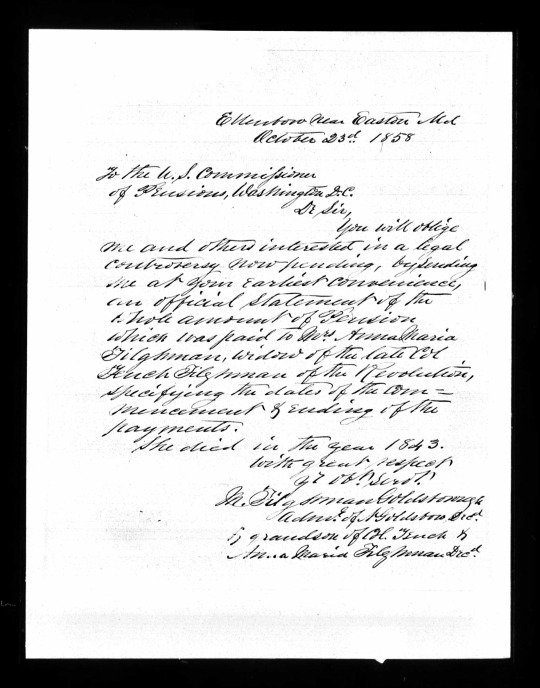 Ellenboro near Easton Md
October 23d. 1858
To the U. S. Commissioner
of Pensions, Washington D.C.
Dr Sir,
You will oblige
me and others interested in a legal
controversy now pending, by sending
me at your earliest convenience,
an official statement of the
whole amount of Pension
which was paid to Mrs Anna Maria
Tilghman, widow of the late Col
Tench Tilghman of the Revolution,
specifying the dates of the com=
mencement & ending of the
payments.
She died in the year 1843.
with great respect
yr obt. Servt.
M. Tilghman Goldsborough
Admr. of N Goldsboro, Decd.
& grandson of Col. Tench &
Anna Maria Tilghman Decd.